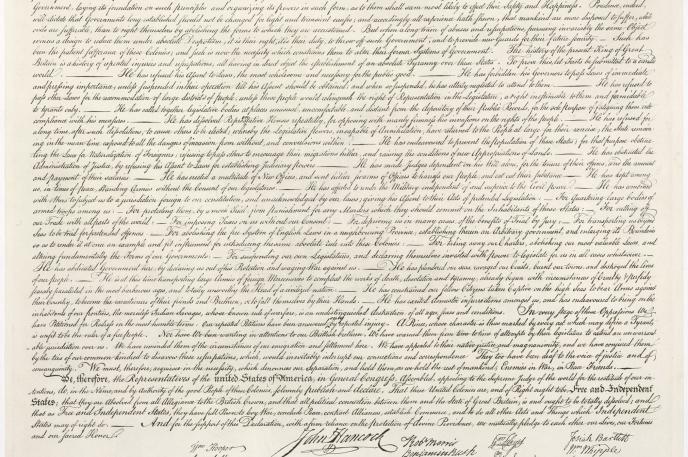 Government, laying its foundation on such principles and organizing its powers in such form, as to them shall seem most likely to effect their Safety and Happiness. Prudence, indeed,
will dictate that Governments long established should not be changed for light and transient causes; and accordingly all experience hath shewn, that mankind are more disposed to suffer, while
evils are sufferable, than to right themselves by abolishing the forms to which they are accustomed. But when a long train of abuses and usurpations, pursuing invariably the same Object
evinces a design to reduce them under absolute Despotism, it is their right, it is their duty, to throw off such Government, and to provide new Guards for their future security. — Such has
been the patient sufferance of these Colonies; and such is now the necessity which constrains them to alter their former Systems of Government. The history of the present King of Great
Britain is a history of repeated injuries and usurpations, all having in direct object the establishment of an absolute Tyranny over these States. To prove this, let Facts be submitted to a candid
world. — He has refused his Assent to Laws, the most wholesome and necessary for the public good. — He has forbidden his Governors to pass Laws of immediate
and pressing importance, unless suspended in their operation till his Assent should be obtained; and when so suspended, he has utterly neglected to attend to them. — He has refused to
pass other Laws for the accommodation of large districts of people, unless those people would relinquish the right of Representation in the Legislature, a right inestimable to them and formidable
to tyrants only. — He has called together legislative bodies at places unusual, uncomfortable, and distant from the depository of their public Records, for the sole purpose of fatiguing them into
compliance with his measures. — He has dissolved Representative Houses repeatedly, for opposing with manly firmness his invasions on the rights of the people. — He has refused for
a long time, after such dissolutions, to cause others to be elected; whereby the Legislative powers, incapable of Annihilation, have returned to the People at large for their exercise; the State remain-
ing in the mean time exposed to all the dangers of invasion from without, and convulsions within. — He has endeavoured to prevent the population of these States; for that purpose obstruc-
ting the Laws for Naturalization of Foreigners; refusing to pass others to encourage their migrations hither, and raising the conditions of new Appropriations of Lands. — He has obstructed the
Administration of Justice, by refusing his Assent to Laws for establishing Judiciary powers. — He has made Judges dependent on his Will alone, for the tenure of their offices, and the amount
and payment of their salaries. — He has erected a multitude of New Offices, and sent hither swarms of Officers to harrass our people, and eat out their substance. — He has kept among
us, in times of peace, Standing Armies without the Consent of our legislatures. — He has affected to render the Military independent of and superior to the Civil power. — He has combined
with others to subject us to a jurisdiction foreign to our constitution, and unacknowledged by our laws; giving his Assent to their Acts of pretended Legislation: — For Quartering large bodies of
armed troops among us: — For protecting them, by a mock Trial, from punishment for any Murders which they should commit on the Inhabitants of these States: — For cutting off
our Trade with all parts of the world: — For imposing Taxes on us without our Consent: — For depriving us in many cases, of the benefits of Trial by jury: — For transporting us beyond
Seas to be tried for pretended offences — For abolishing the free System of English Laws in a neighbouring Province, establishing therein an Arbitrary government, and enlarging its Boundaries
so as to render it at once an example and fit instrument for introducing the same absolute rule into these Colonies: — For taking away our Charters, abolishing our most valuable Laws, and
altering fundamentally the Forms of our Governments: — For suspending our own Legislatures, and declaring themselves invested with power to legislate for us in all cases whatsoever. —
He has abdicated Government here, by declaring us out of his Protection and waging War against us. — He has plundered our seas, ravaged our Coasts, burnt our towns, and destroyed the lives
of our people. — He is at this time transporting large Armies of foreign Mercenaries to compleat the works of death, desolation and tyranny, already begun with circumstances of Cruelty & perfidy
scarcely paralleled in the most barbarous ages, and totally unworthy the Head of a civilized nation. — He has constrained our fellow Citizens taken Captive on the high Seas to bear Arms against
their Country, to become the executioners of their friends and Brethren, or to fall themselves by their Hands. — He has excited domestic insurrections amongst us, and has endeavoured to bring on the
inhabitants of our frontiers, the merciless Indian Savages, whose known rule of warfare, is an undistinguished destruction of all ages, sexes and conditions. In every stage of these Oppressions We
have Petitioned for Redress in the most humble terms: Our repeated Petitions have been answered only by repeated injury. A Prince, whose character is thus marked by every act which may define a Tyrant,
is unfit to be the ruler of a free people. Nor have We been wanting in attentions to our Brittish brethren. We have warned them from time to time of attempts by their legislature to extend an unwarrant-
able jurisdiction over us. We have reminded them of the circumstances of our emigration and settlement here. We have appealed to their native justice and magnanimity, and we have conjured them
by the ties of our common kindred to disavow these usurpations, which, would inevitably interrupt our connections and correspondence. They too have been deaf to the voice of justice and of
consanguinity. We must, therefore, acquiesce in the necessity, which denounces our Separation, and hold them, as we hold the rest of mankind, Enemies in War, in Peace Friends. —
We, therefore, the Representatives of the united States of America, in General Congress, Assembled, appealing to the Supreme Judge of the world for the rectitude of our in-
tentions, do, in the Name, and by Authority of the good People of these Colonies, solemnly publish and declare, That these United Colonies are, and of Right ought to be Free and Independent
States; that they are Absolved from all Allegiance to the British Crown, and that all political connection between them and the State of Great Britain, is and ought to be totally dissolved; and
that as Free and Independent States, they have full Power to levy War, conclude Peace, contract Alliances, establish Commerce, and to do all other Acts and Things which Independent
States may of right do. — And for the support of this Declaration, with a firm reliance on the protection of divine Providence, we mutually pledge to each other our Lives, our Fortunes
and our sacred Honor.
John Hancock
Wm Hooper
Robt Morris
Benjamin Rush
Josiah Bartlett
Wm Whipple